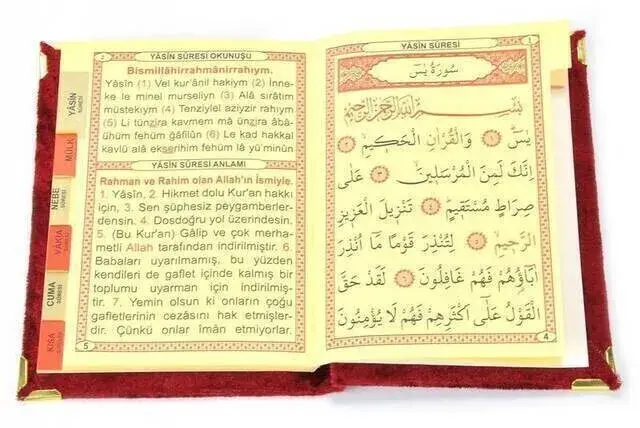 YÂSÎN SÛRESİ OKUNUŞU
Bismillâhirrahmânirrahıym.
Yâsîn (1) Vel kur'ânil hakiym (2) İnne-
ke le minel murseliyn (3) Alâ sirâtim
müstekıym (4) Tenziylel aziyzir rahıym
(5) Li tünzira kavmem mâ ünzira âbâ-
ühüm fehüm ğâfilûn (6) Le kad hakkal
kavlü alâ ekserihim fehüm lâ yü'minûn
YÂSÎN SÛRESİ ANLAMI
Rahman ve Rahim olan Allah'ın İsmiyle.
1. Yâsîn, 2. Hikmet dolu Kur'an hakkı
için, 3. Sen şüphesiz peygamberler-
densin. 4. Dosdoğru yol üzerindesin.
5. (Bu Kur'an) Gâlip ve çok merha-
metli Allah tarafından indirilmiştir. 6.
Babaları uyarılmamış, bu yüzden
kendileri de gaflet içinde kalmış bir
toplumu uyarman için indirilmiş-
tir. 7. Yemin olsun ki onların çoğu
gafletlerinin cezasını hak etmişler-
dir. Çünkü onlar îmân etmiyorlar.
5
YÂSÎN SÛRESİ
MÜLK
NEBE SÛRESİ
VÂKIA
CUMA SÛRESİ
KISA
YÂSÎN SÛRESİ
سُورَةُ يٰسٓ
بِسْمِ اللّٰهِ الرَّحْمٰنِ الرَّحِيمِ
يٰسٓ ﴿١﴾ وَالْقُرْاٰنِ الْحَكِيمِ ﴿٢﴾
اِنَّكَ لَمِنَ الْمُرْسَلِينَ ﴿٣﴾ عَلٰى
صِرَاطٍ مُسْتَقِيمٍ ﴿٤﴾ تَنْزِيلَ الْعَزِيزِ
الرَّحِيمِ ﴿٥﴾ لِتُنْذِرَ قَوْمًا مَٓا اُنْذِرَ
اٰبَٓاؤُهُمْ فَهُمْ غَافِلُونَ ﴿٦﴾ لَقَدْ حَقَّ
الْقَوْلُ عَلٰٓى اَكْثَرِهِمْ فَهُمْ لَا يُؤْمِنُونَ
4